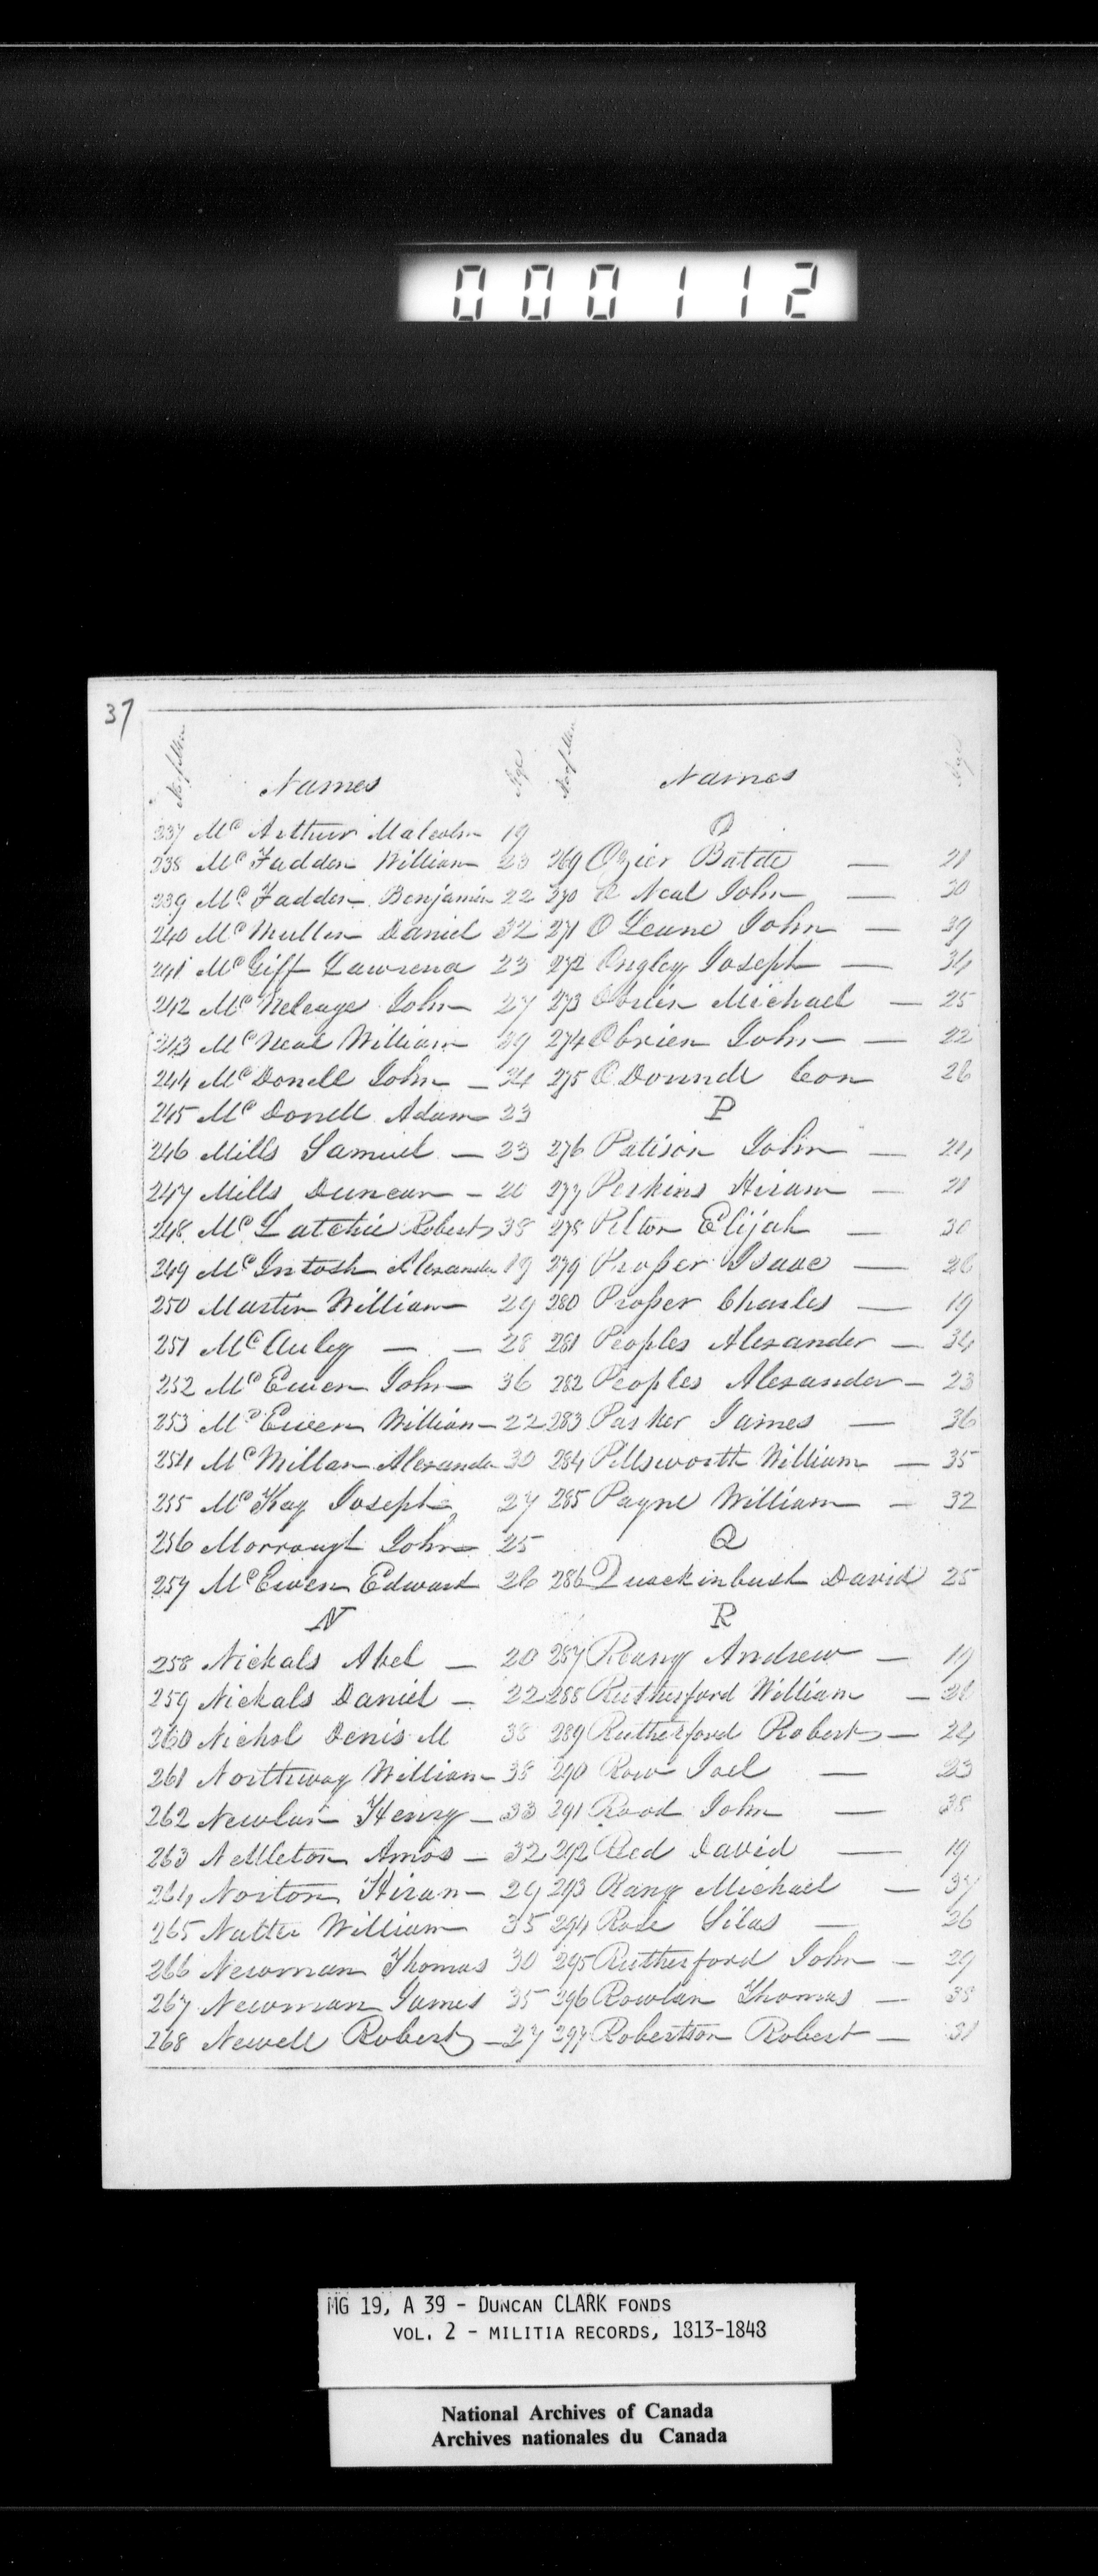 000112
37
No of Men Names Age
237 Mc Arthur Malcolm 19
238 Mc Fadden William 23
239 Mc Fadden Benjamin 22
240 Mc Mullen Daniel 32
241 Mc Giff Lawrence 23
242 Mc John 27
243 Mc Neal William 29
244 Mc Donell John — 34
245 Mc Donell Adam 23
246 Mills Samuel — 23
247 Mills Duncan — 20
248 Mc Latchie Robert 38
249 Mc Intosh Alexander 19
250 Martin William 29
251 Mc Auley — — 28
252 Mc Ewen John 36
253 Mc Ewen William 22
254 Mc Millan Alexander 30
255 Mc Kay Joseph 27
256 Morrough John 25
257 Mc Ewen Edward 26
N
258 Nickals Abel — 20
259 Nickals Daniel — 22
260 Nichol Denis M 38
261 Northway William 38
262 Newlan Henry — 33
263 Nettleton Amos — 32
264 Norton Hiram — 29
265 Nutter William 35
266 Newman Thomas 30
267 Newman James 35
268 Newell Robert — 27
No of Men Names Age
O
269 Ozier Batde — 21
270 O Neal John — 30
271 O Leane John — 39
272 Ongley Joseph — 34
273 Obrien Michael — 25
274 Obrien John — 22
275 O Donnell Con 26
P
276 Patison John — 21
277 Perkins Hiram — 21
278 Pelton Elijah — 30
279 Proper Isaac — 26
280 Proper Charles — 19
281 Peoples Alexander — 34
282 Peoples Alexander — 23
283 Parker James — 36
284 Pillsworth William — 35
285 Payne William — 32
Q
286 Quackinbush David 25
R
287 Reany Andrew — 19
288 Rutherford William — 21
289 Rutherford Robert — 24
290 Row Joel — 23
291 Rood John — 38
292 Reed David — 19
293 Rang Michael — 37
294 Rose Silas — 26
295 Rutherford John — 29
296 Rowlan Thomas — 38
297 Robertson Robert — 31
MG 19, A 39 - DUNCAN CLARK FONDS
VOL. 2 - MILITIA RECORDS, 1813-1848
National Archives of Canada
Archives nationales du Canada